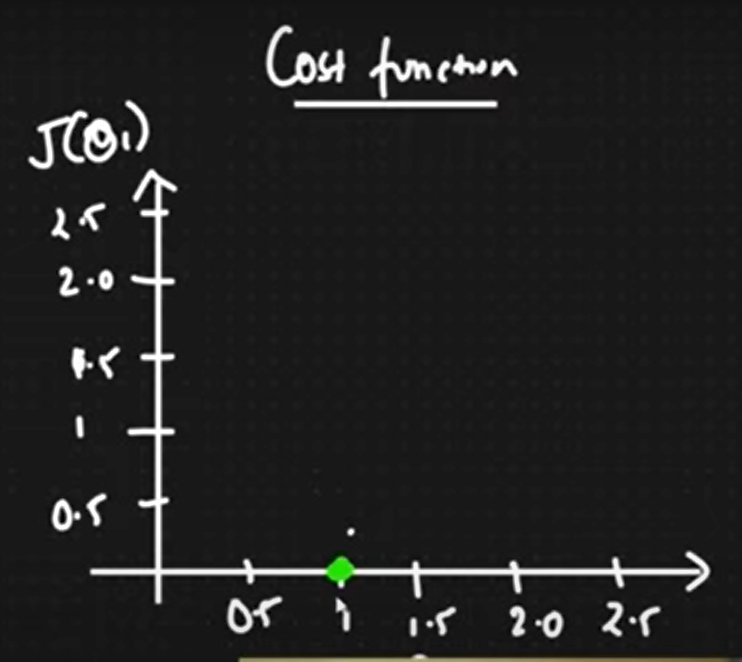 Cost function
J(θ₁)
2.5
2.0
1.5
1
0.5
0.5 1 1.5 2.0 2.5